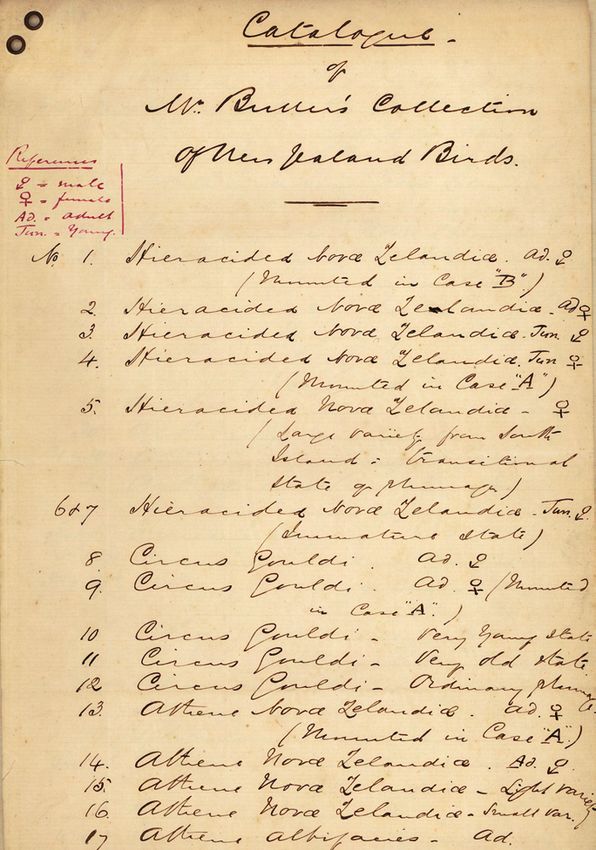 Catalogue -
of
Mr. Buller's Collection
Of New Zealand Birds.
References
♂ = male
♀ = female
Ad. = adult
Juv. = Young.
No. 1. Hieracidea Novæ Zelandiæ. Ad. ♂
(Mounted in Case "B")
2. Hieracidea Novæ Zelandiæ. Ad ♀
3. Hieracidea Novæ Zelandiæ. Juv. ♂
4. Hieracidea Novæ Zelandiæ. Juv ♀
(Mounted in Case "A")
5. Hieracidea Novæ Zelandiæ - ♀
(Large variety from South
Island = transitional
state of plumage)
6 & 7 Hieracidea Novæ Zelandiæ. Juv. ♂
(Immature state)
8. Circus Gouldi. Ad. ♂
9. Circus Gouldi. Ad. ♀ (Mounted
in Case "A".)
10 Circus Gouldi - Very Young state
11 Circus Gouldi - Very old state
12 Circus Gouldi - Ordinary plumage.
13. Athene Novæ Zelandiæ. Ad. ♀
(Mounted in Case "A".)
14. Athene Novæ Zelandiæ. Ad. ♂
15. Athene Novæ Zelandiæ - Light variety
16. Athene Novæ Zelandiæ - Small var.
17 Athene albifacies - Ad.